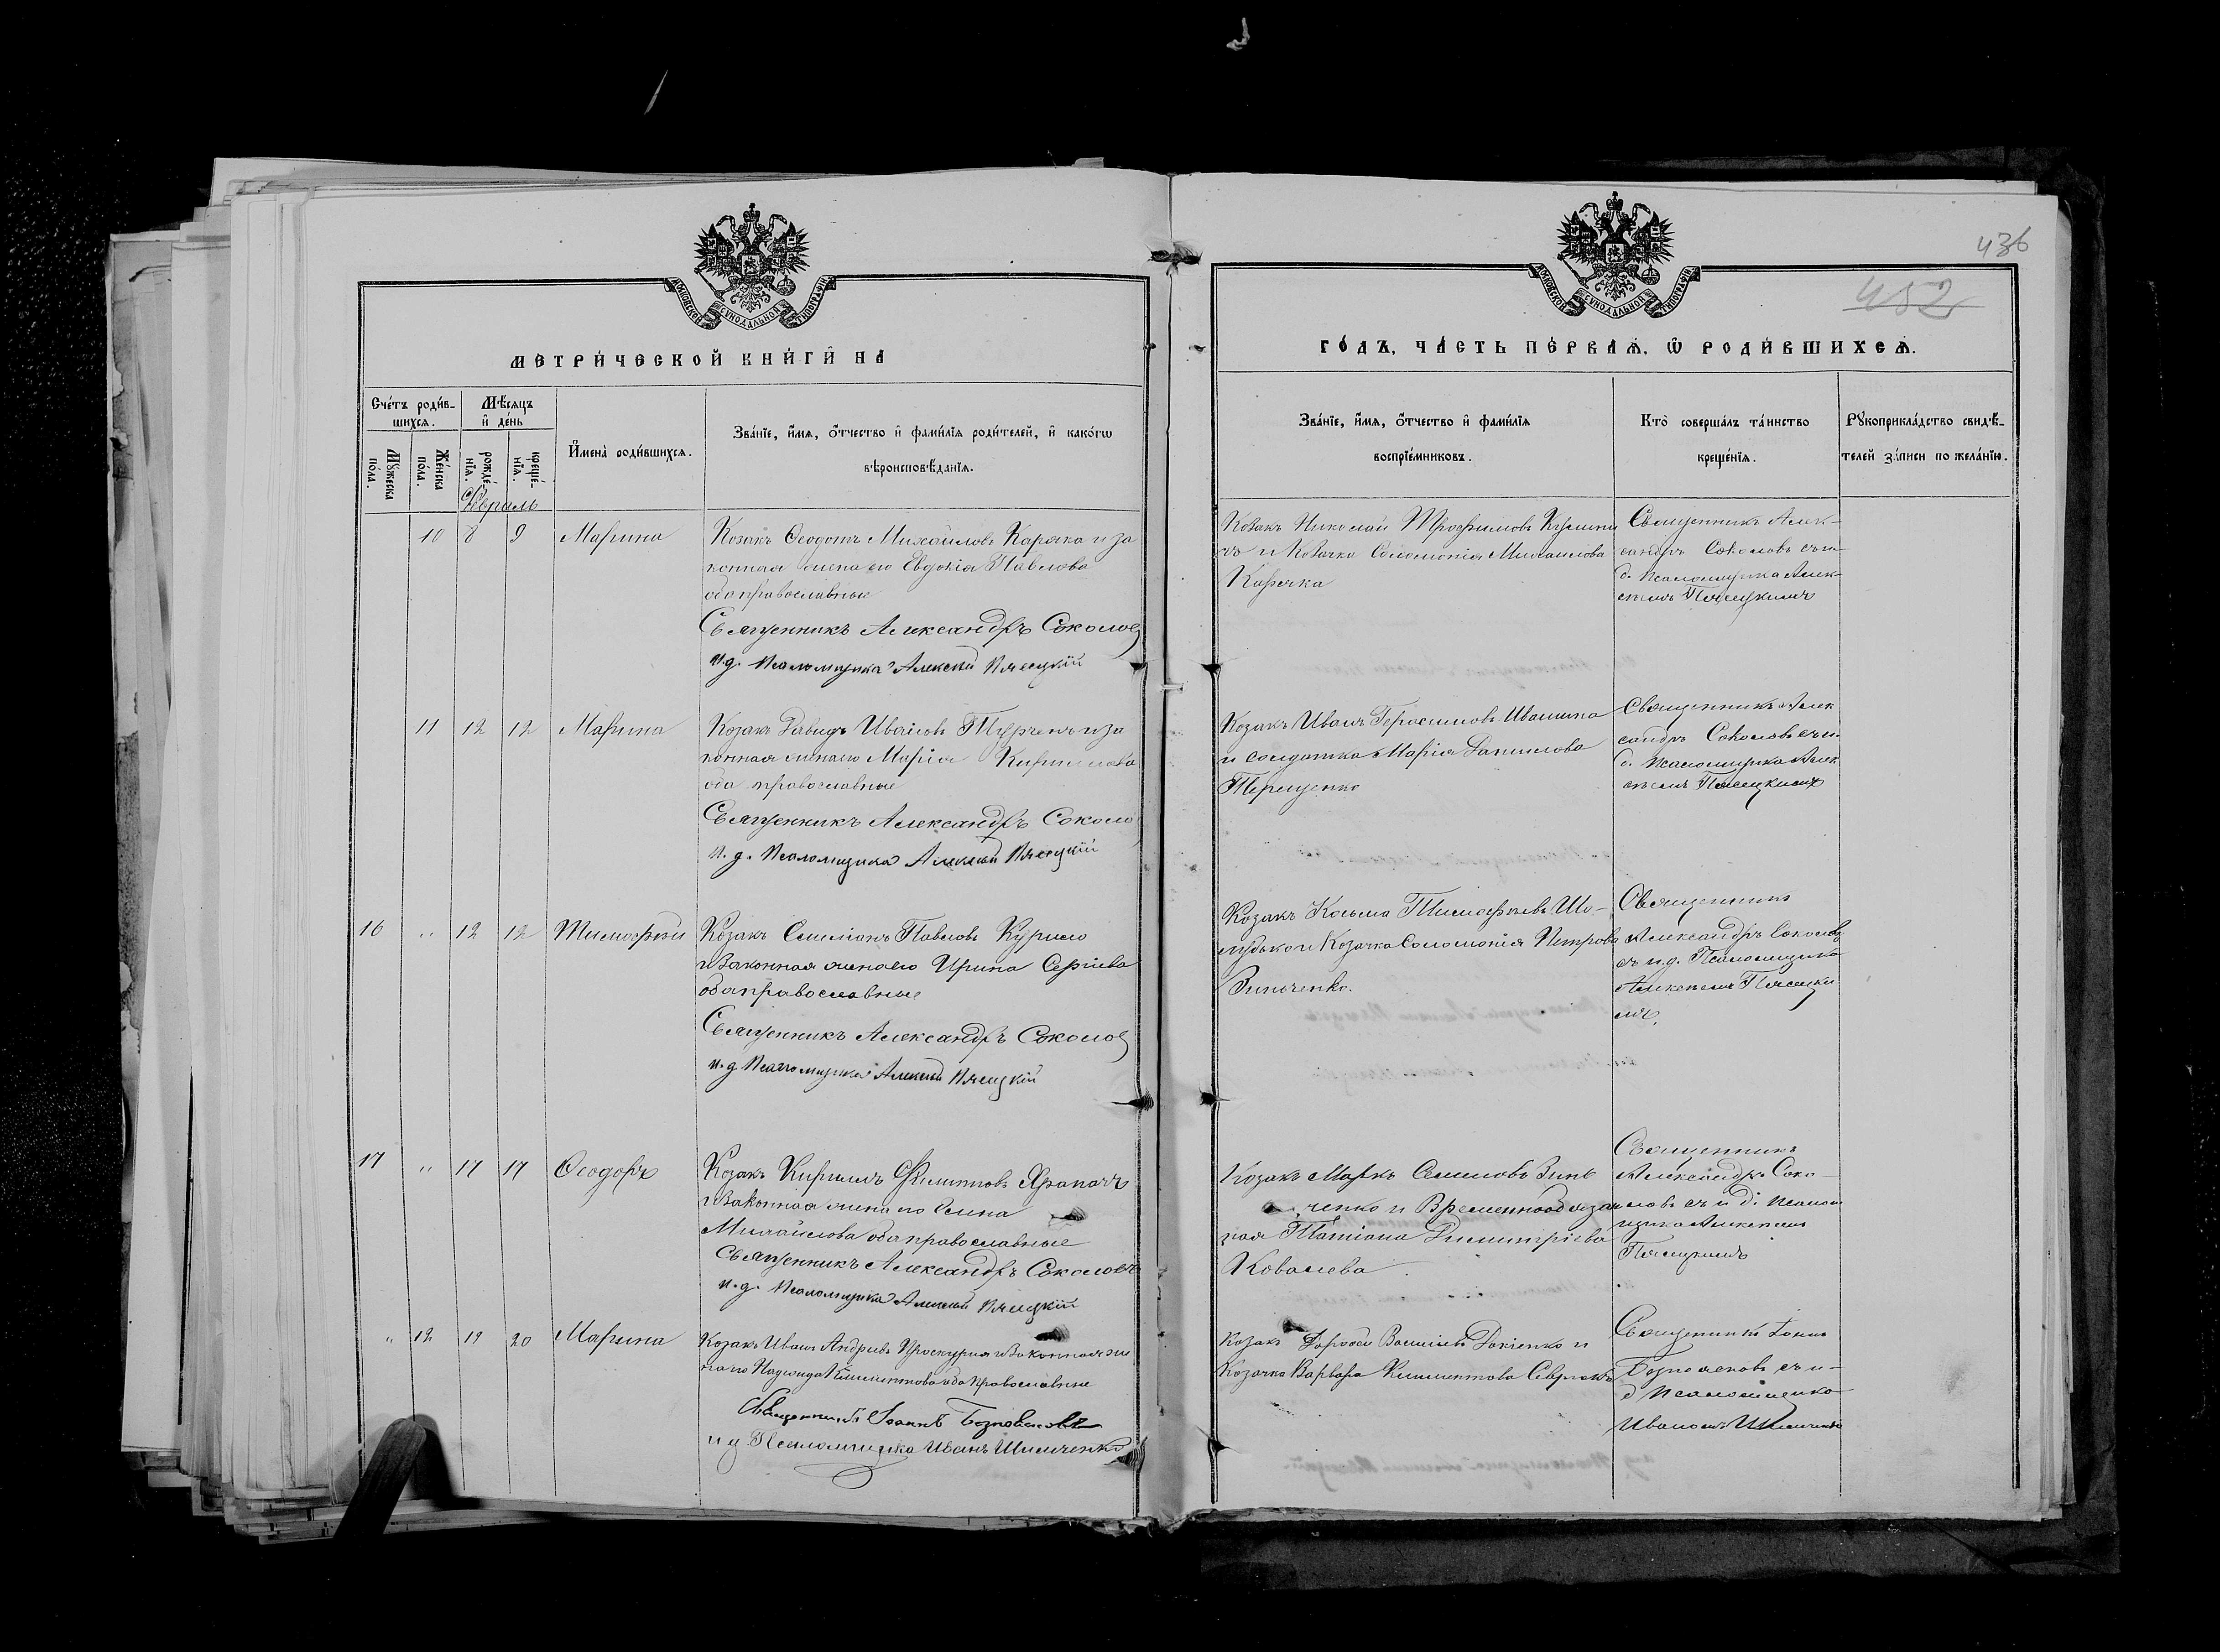 436
452
МОСКОВСКОЙ СѴНОДАЛЬНОЙ ТИПОГРАФІИ
МЕТРИ́ЧЕСКОЙ КНИ́ГИ НА
Сче́тъ роди́в-
шихсѧ.
Мѣ́сѧцъ
и҆ де́нь
Мꙋ́жеска
по́ла.
Же́нска
по́ла.
рожде́-
нїѧ.
креще́-
нїѧ.
И҆мена̀ роди́вшихсѧ.
Зва́нїе, и҆́мѧ, ѻ҆́тчество и҆ фами́лїѧ роди́телей, и҆ како́гѡ
вѣроисповѣ́данїѧ.
Февраль
10 8 9 Марина
Козакъ Ѳеодотъ Михайловъ Карячка и за
конная жена его Евдокія Павлова
оба православные
Священникъ Александръ Соколов
и.д. Псаломщика Алексѣй Пясецкій
11 12 12 Марина
Козакъ Давидъ Ивановъ и за
конная жена его Марія Кириллова
оба православные
Священникъ Александръ Соколо
и.д. Псаломщика Алексѣй Пясецкій
16 " 12 12 Тимофей
Козакъ Симеонъ Павловъ Курило
и Законная жена его Ирина Сергіева
оба православные
Священникъ Александръ Соколов
и.д Псаломщика Алексѣй Пясецкій
17 " 17 17 Ѳеодоръ
Козакъ Кириллъ Филипповъ Храпачъ
и Законная жена его Елена
Михайлова оба православные
Священникъ Александръ Соколовъ
и.д. Псаломщика Алексѣй Пясецкій
" 12 19 20 Марина
Козакъ Иванъ Андреевъ и Законная же
на его Надежда Климентова оба православные
Священникъ Іоаннъ
и д Псаломщика Иванъ Шимченко
ГО́ДЪ, ЧА́СТЬ ПЕ́РВАѦ, Ѡ҆ РОДИ́ВШИХСѦ.
Зва́нїе, и҆́мѧ, ѻ҆́тчество и҆ фами́лїѧ
воспрїе́мниковъ.
Кто̀ соверша́лъ та́инство
креще́нїѧ.
Рꙋкоприкла́дство свидѣ́-
телей за́писи по жела́нїю.
Козакъ Николай Трофимовъ
и Козачка Соломонія Михайлова
Карячка
Священникъ Алек-
сандръ Соколовъ съ и-
д. Псаломщика Алек-
сѣемъ Пясецкимъ
Козакъ Иванъ Герасимовъ Ивашина
и солдатка Марія Данилова
Терещенко
Священникъ Алек
сандръ Соколовъ съ и.
д. Псаломщика Алек
сѣемъ Пясецкимъ
Козакъ Косьма Тимофѣевъ Ше-
лудько и Козачка Соломонія Петрова
Зинченко.
Священникъ
Александръ Соколовъ
съ и.д. Псаломщика
Алексѣемъ Пясецки
мъ.
Козакъ Марко Семеновъ Зинь
ченко и Временнообязан
ная Татіана Димитріева
Ковалева
Священникъ
Александръ Соко-
ловъ съ и д. Псалом
щика Алексѣемъ
Пясецкимъ
Козакъ Дорофей Васильевъ и
Козачка Варвара Климентова
Священникъ Іоаннъ
съ и-
д Псаломщика
Иваномъ